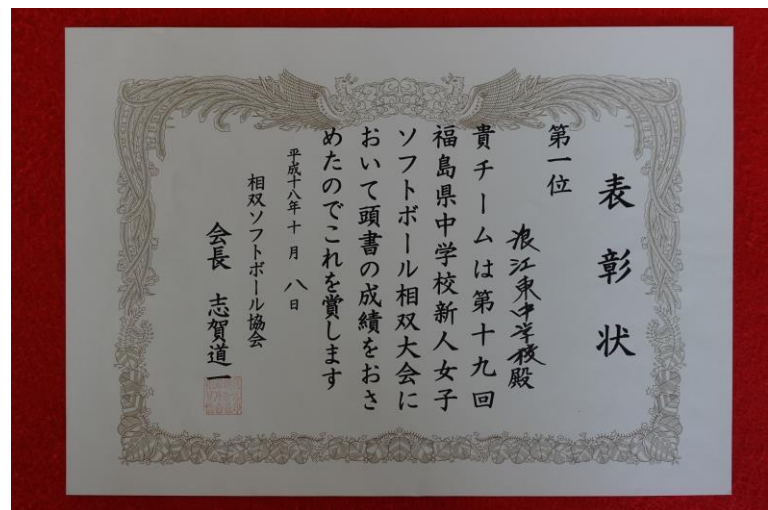 表彰状
第一位
浪江東中学校殿
貴チームは第十九回
福島県中学校新人女子
ソフトボール相双大会に
おいて頭書の成績をおさ
めたのでこれを賞します
平成十八年十月八日
相双ソフトボール協会
会長 志賀道一